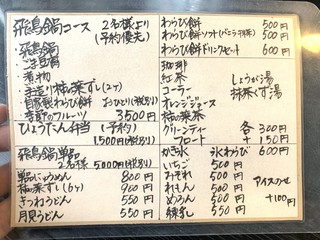 飛鳥鍋コース 2名様より(予約優先)
・飛鳥鍋
・ごま豆腐
・煮物
・手造り柿の葉ずし(2ヶ)
・自家製わらび餅 おひとり(税別)
・季節のフルーツ 3500円
ひょうたん弁当(予約)
飛鳥鍋単品
2名様 5000円(税別)
単品にゅうめん 800円
柿の葉ずし(6ヶ) 900円
きつねうどん 550円
月見うどん 550円
わらび餅 500円
わらび餅ソフト(バニラ・抹茶) 500円
わらび餅ドリンクセット 600円
珈琲
紅茶 しょうが湯
コーラー 抹茶くず湯
オレンジジュース
柿の葉茶
グリーンティー 各300円
フロート +150円
かき氷 氷わらび 600円
いちご 500円
みぞれ 500円
れもん 500円
めろん 500円
練乳 550円
アイスのせ
+100円